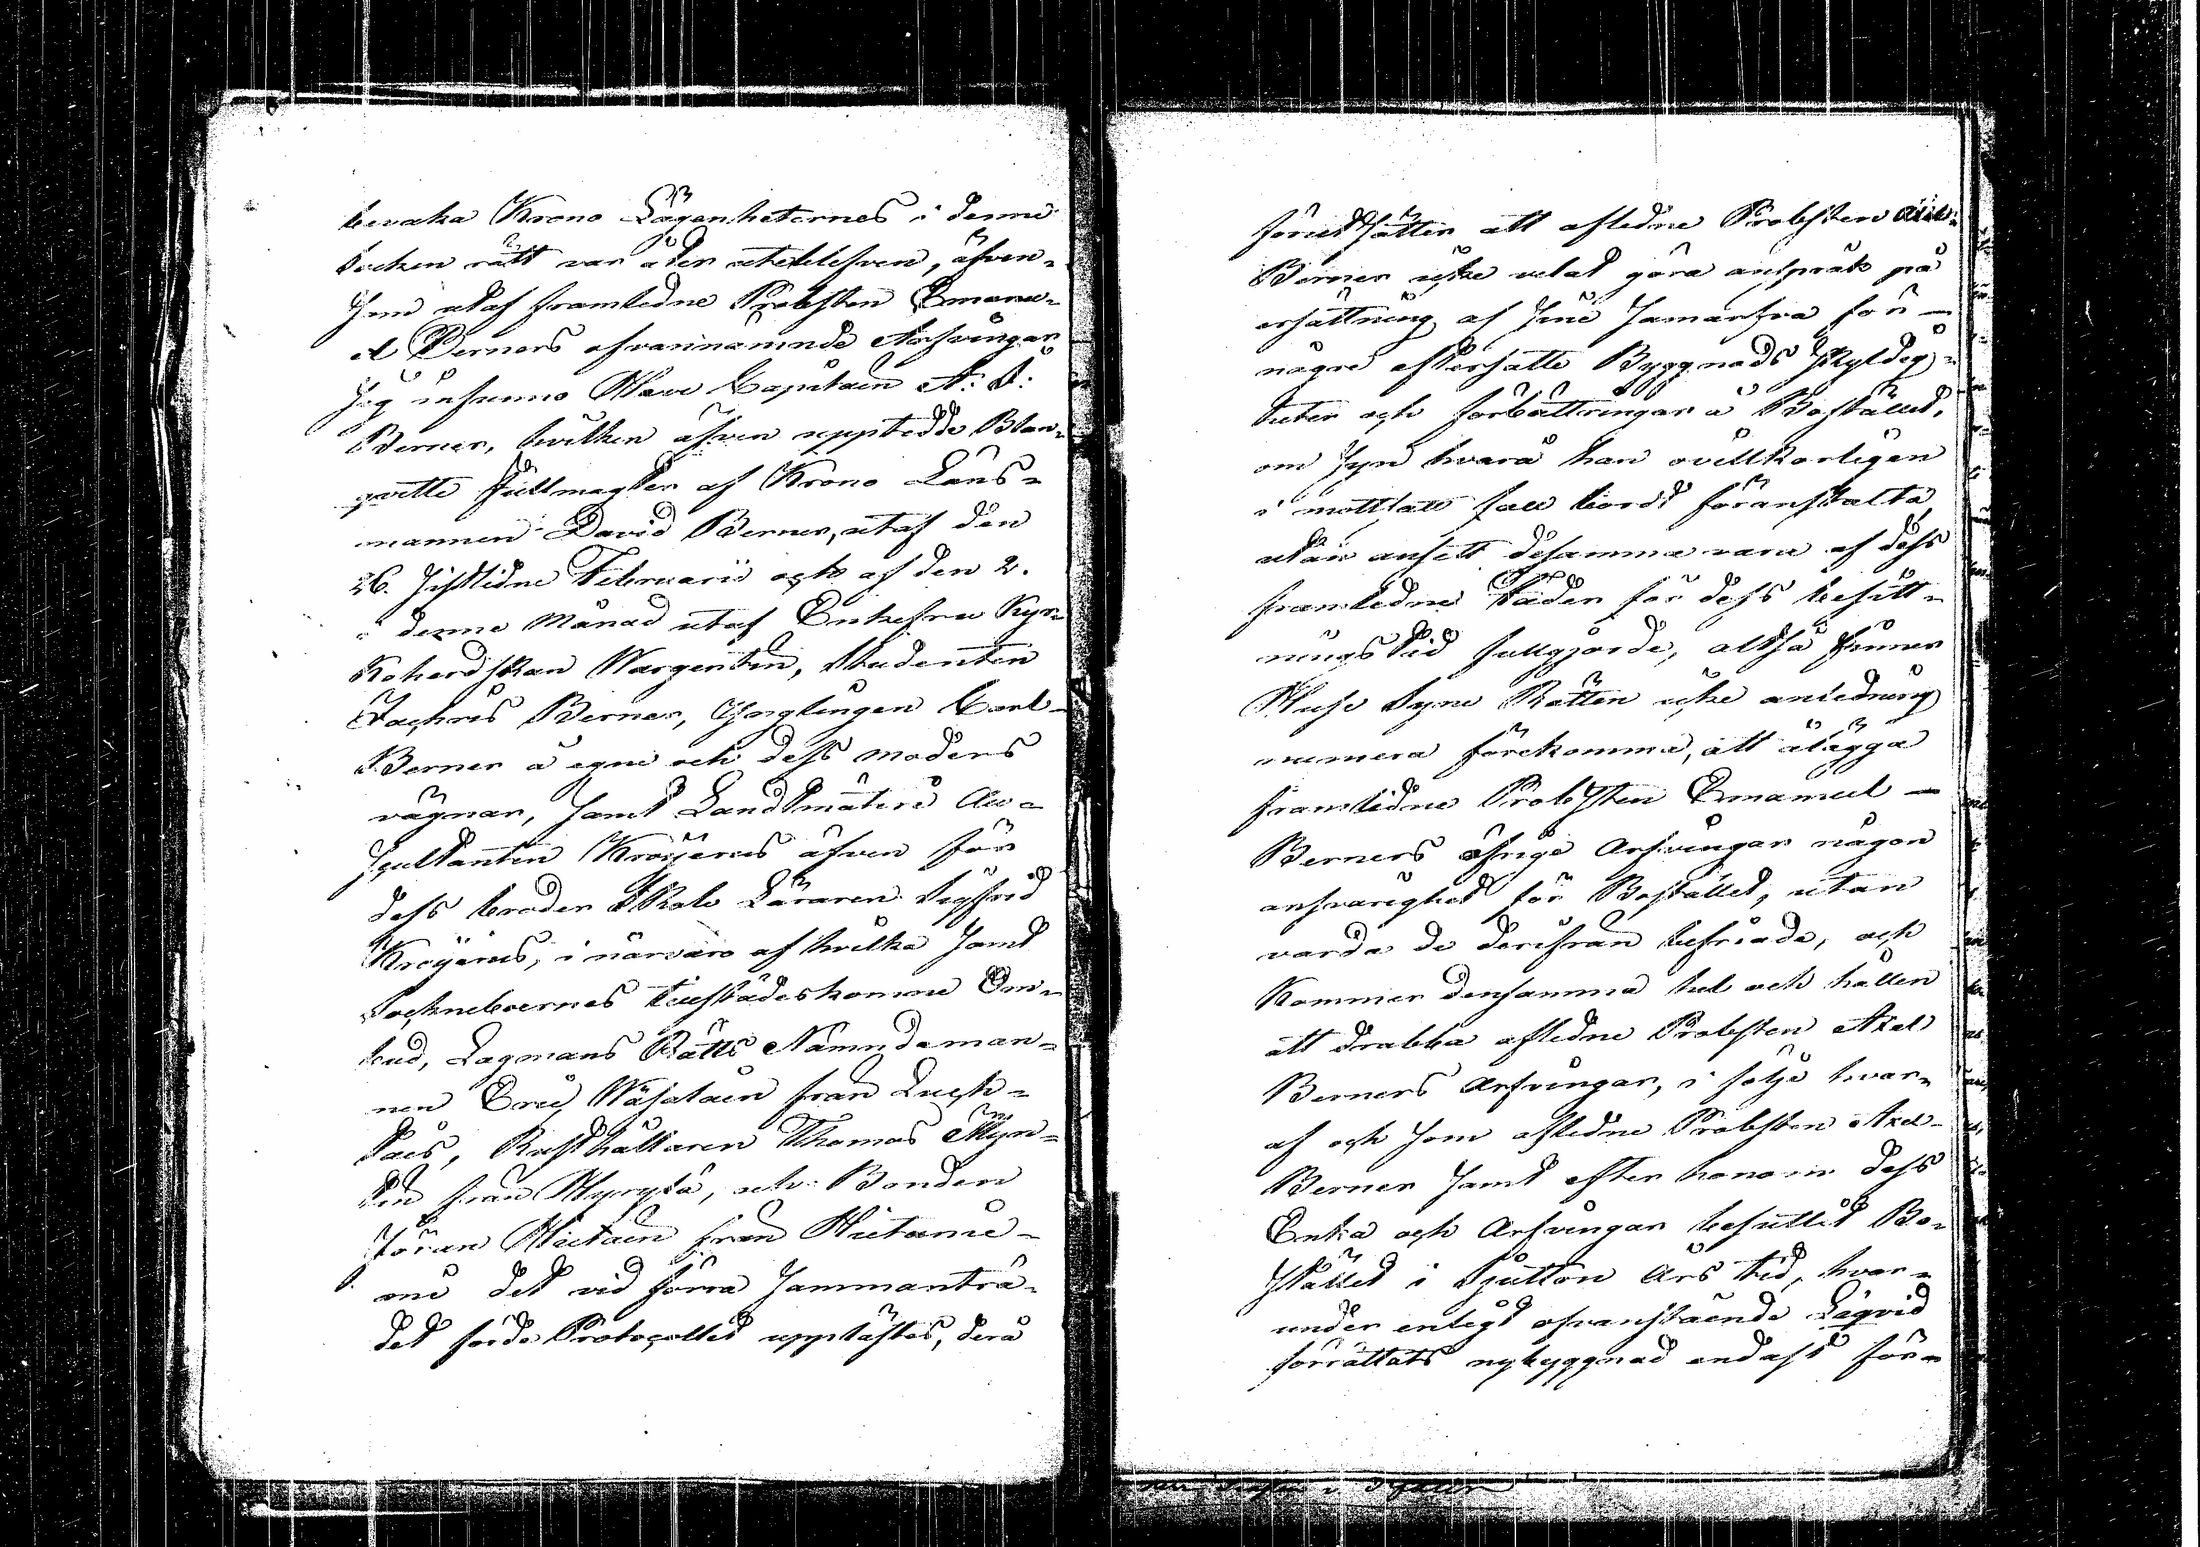 bevaka Krono Lägenheternes i denne
socken rätt var äfven utebblefven, äfven¬
som utaf framledne Probsten Emanu¬
el Berners ofvannämnde Arfvingar
sig infunno Herr Capitain A: J:
Berner, hvilken äfven uppteddе Blan¬
qvette fullmagter af Krono Läns¬
mannen David Berner, utaf den
26. sistledne Februarii och af den 2.
i denne Månad utaf Enkefru Kyr¬
koherdskan Wargentin, Studenten
Zachris Berner, Ynglingen Carl
Berner å egne och dess moders
vägnar, samt Landtmäteri Au¬
scultanten Kröijerus äfven för
dess broder Skole Läraren Sigfrid
Kröijerus, i närvaro af hvilka samt
Sockneboernes tillstädeskomne Om¬
bud, Lagmans Rätts Nämndeman¬
nen Eric Wäjatain från Luch¬
tais, Rusthållaren Thomas Myn¬
din från Myrylä, och Bonden
Jöran Hietain från Hietanie¬
mi det vid förra Sammanträ¬
det förde Protocollet upplästes, derå
förutsätter att afledne Probsten Axel
Berner icke velat göra anspråk på
ersättning af sine Samarfva för
någre eftersatte Byggnads skyldig¬
heter och förbättringar å Bostället,
om syn hvarå han ovillkorligen
i motsatt fall bordt föranstalta,
utan ansett desamma vara af dess
framledne Fader för dess besitt¬
ningstid fullgjorde, altså finner
Huse Syne Rätten icke anledning
numera förekomma, att ålägga
framledne Probsten Emanuel
Berners öfrige Arfvingar någon
ansvarighet för Bostället, utan
varda de derifrån befriade, och
Kommer densamma hel och hållen
att drabba afledne Probsten Axel
Berners Arfvingar, i följe hvar¬
af och som afledne Probsten Axel
Berner samt efter honom dess
Enka och Arfvingar besuttit Bo¬
stället i Sjutton Års tid, hvar¬
under enligt ofvanstående Liqvid
förrättats nybyggnad endast för¬